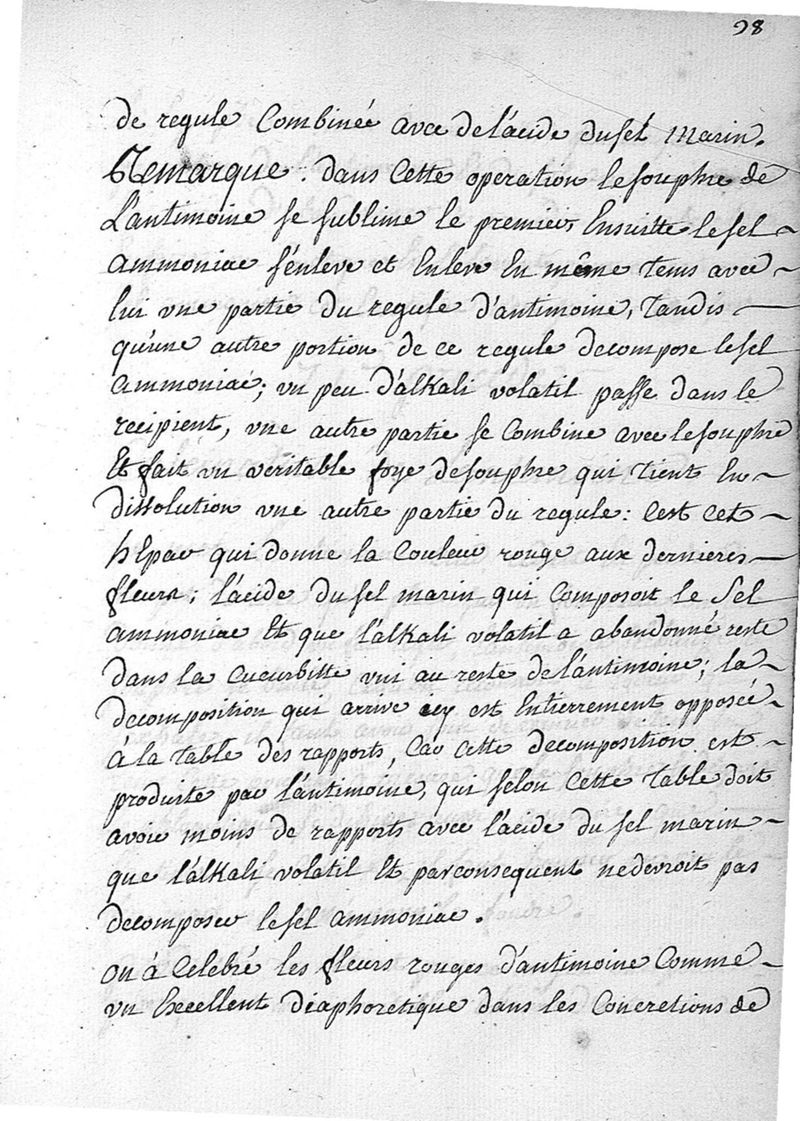 98
de regule Combinée avec de l'acide du sel marin.
Remarque : dans Cette operation le souphre de
L'antimoine se sublime le premier, Ensuitte le sel
ammoniac s'enleve et Enleve En même tems avec
lui une partie du regule d'antimoine, tandis
qu'une autre portion de ce regule decompose le sel
ammoniac; un peu d'alkali volatil passe dans le
recipient, une autre partie se Combine avec le souphre
Et fait un veritable foye de souphre qui tient En
dissolution une autre partie du regule : C'est Cet
hEpar qui donne la Couleur rouge aux dernieres
fleurs; l'acide du sel marin qui Composoit le Sel
ammoniac Et que l'alkali volatil a abandonné reste
dans la Cucurbitte uni au reste de l'antimoine; la
decomposition qui arrive icy est Entierrement opposée
à la table des rapports, Car Cette decomposition est
produite par l'antimoine, qui selon Cette table doit
avoir moins de rapports avec l'acide du sel marin
que l'alkali volatil Et par consequent ne devroit pas
decomposer le sel ammoniac.
on à Celebré les fleurs rouges d'antimoine Comme
un Excellent diaphoretique dans les Concretions de